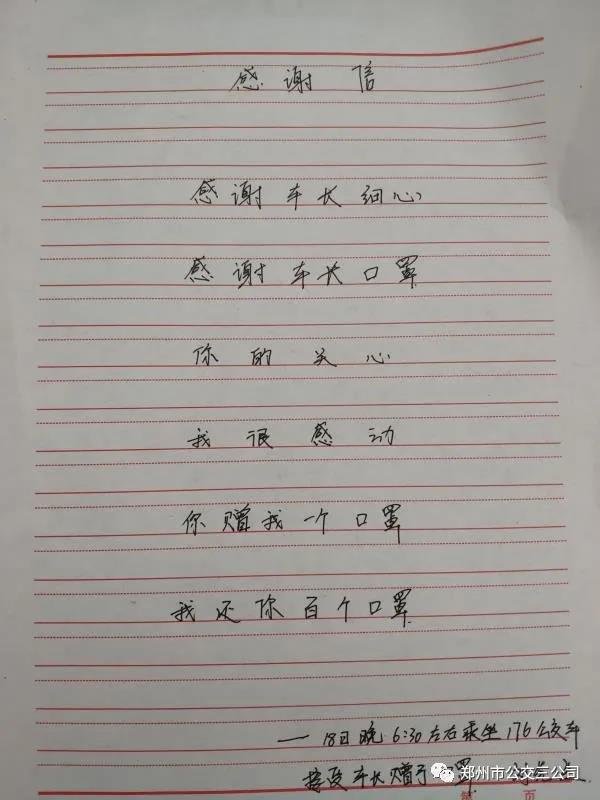 感谢信
感谢车长细心
感谢车长口罩
你的关心
我很感动
你赠我一个口罩
我还你百个口罩
一 18日晚6:30左右乘坐176公交车
接受车长赠予口罩
第 页
郑州市公交三公司